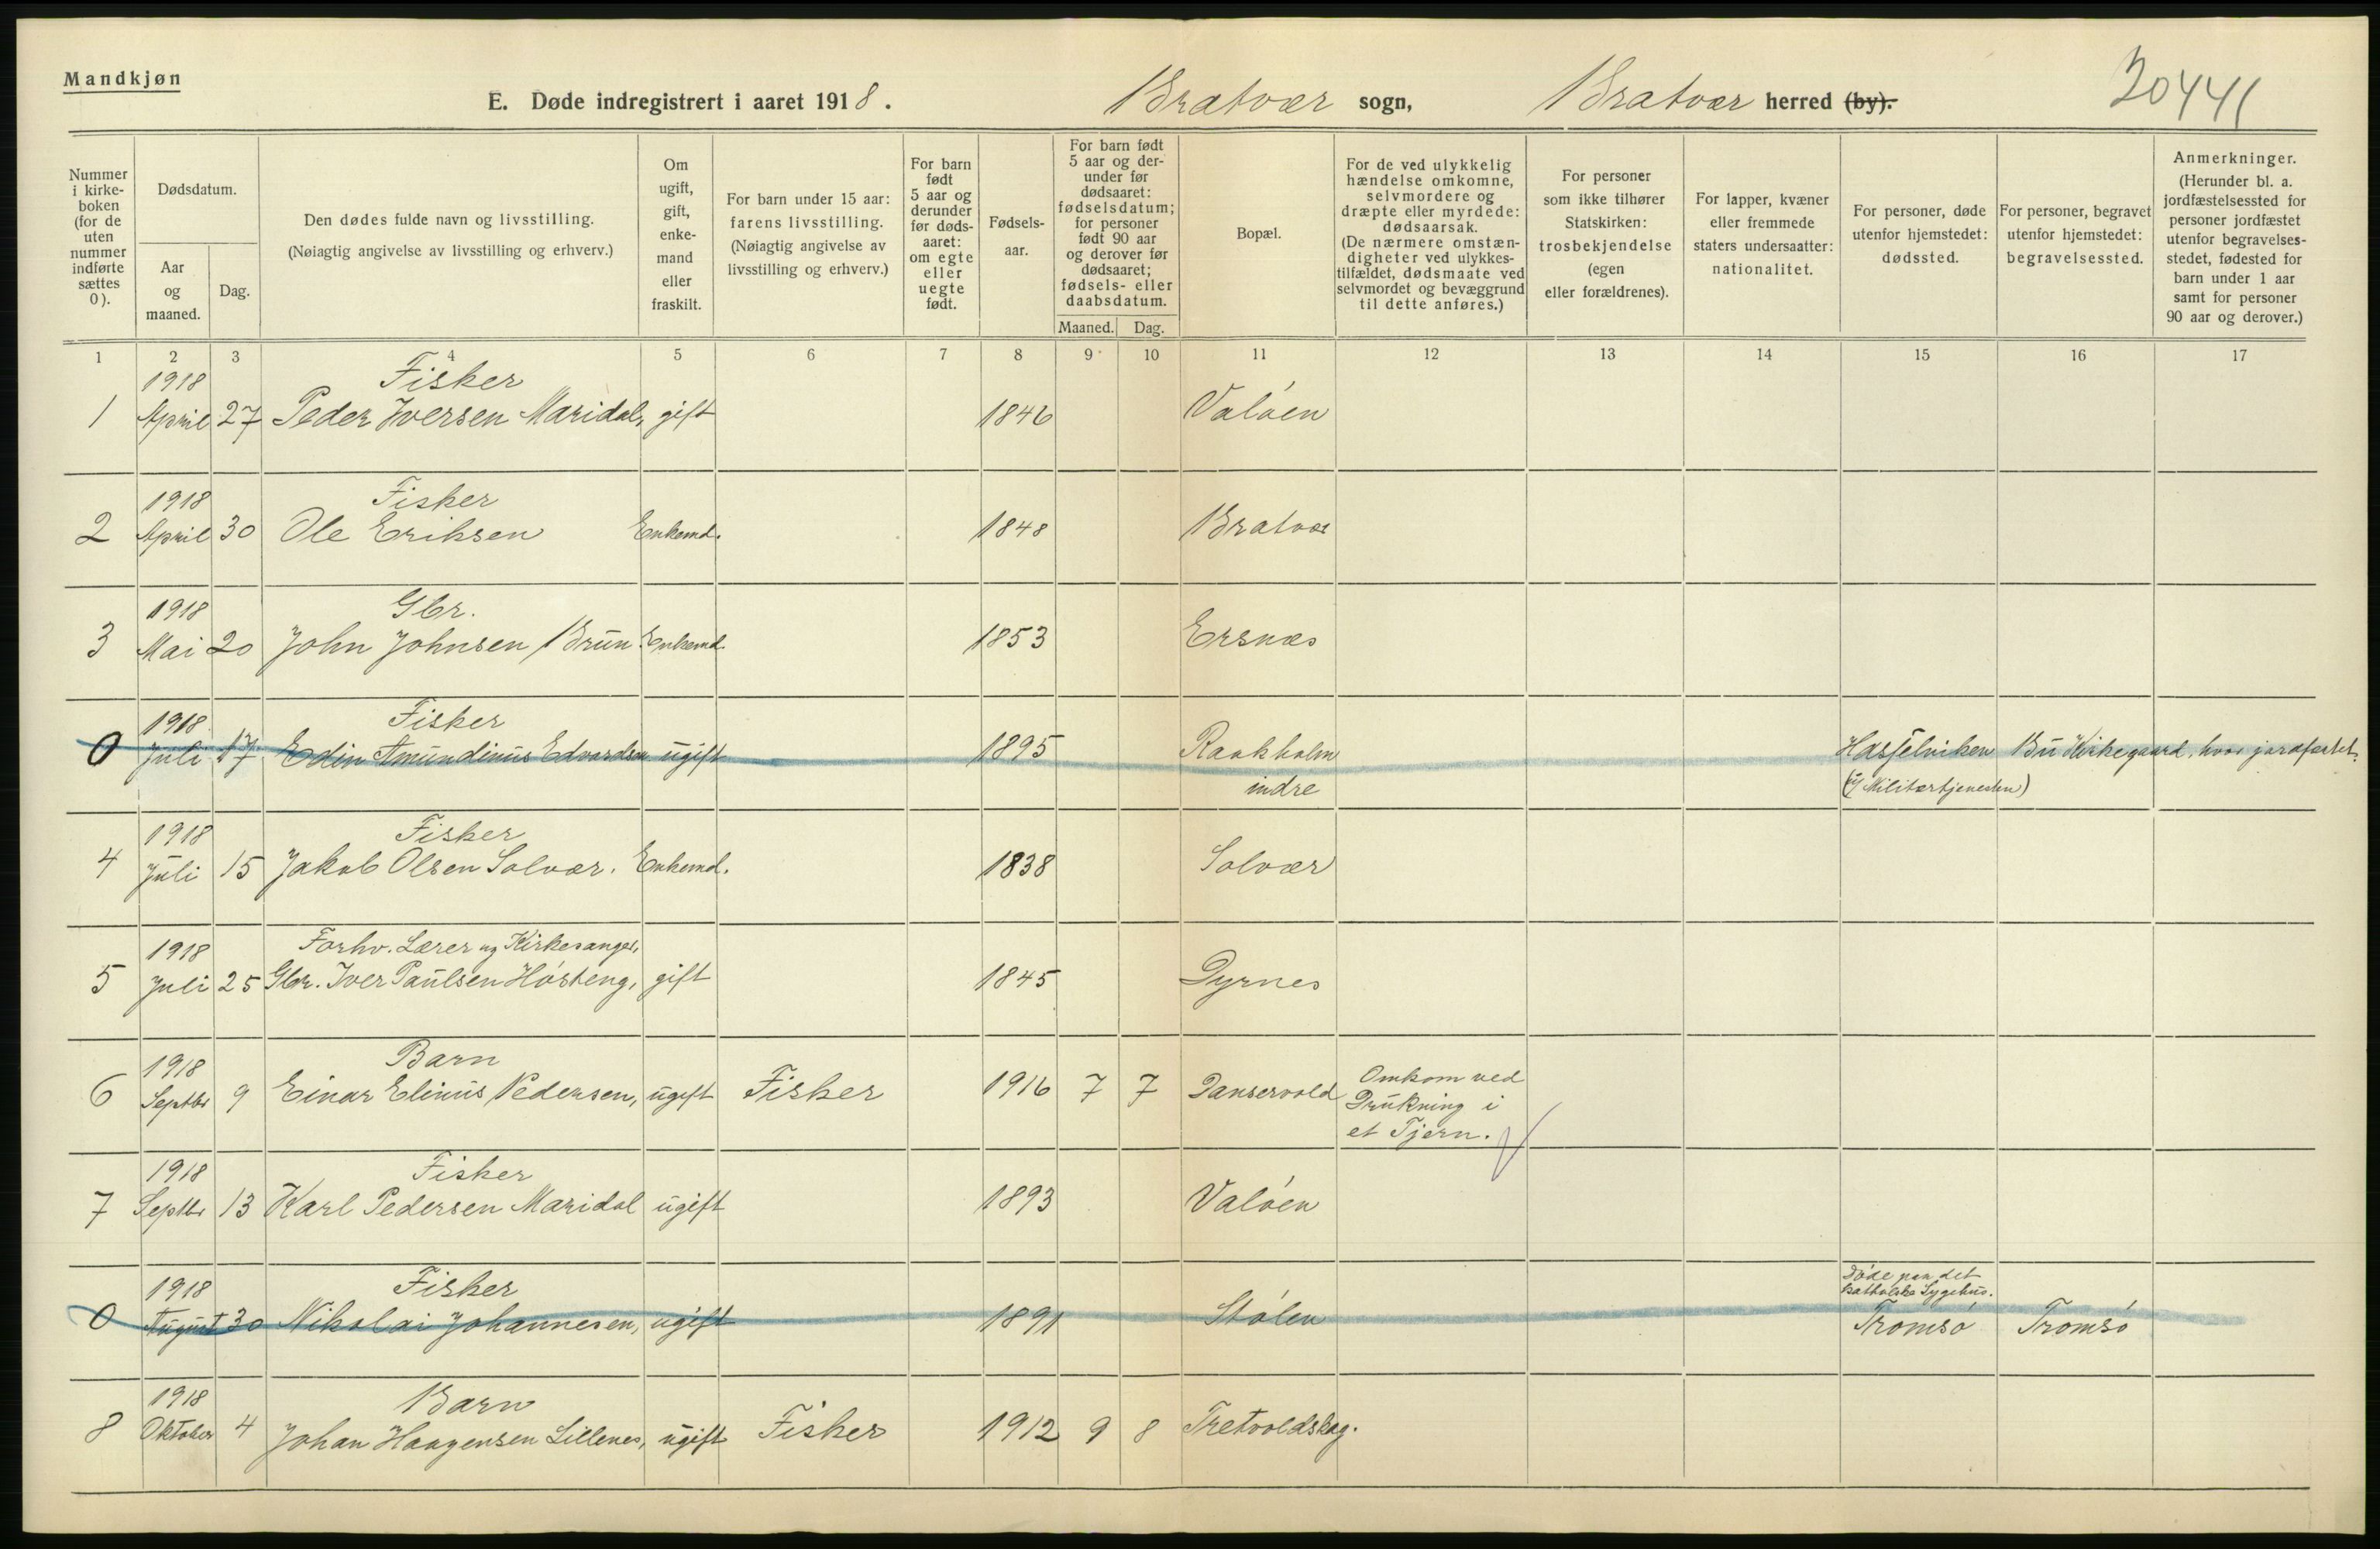 Mandkjøn
E. Døde indregistrert i aaret 1918.
Bratvær sogn,
Bratvær herred (by).
20441
Nummer i kirke- boken (for de uten nummer indførte sættes 0).
Dødsdatum.
Aar og maaned.
Dag.
Den dødes fulde navn og livsstilling.
(Nøiagtig angivelse av livsstilling og erhverv.)
Om ugift, gift, enke- mand eller fraskilt.
For barn under 15 aar: farens livsstilling. (Nøiagtig angivelse av livsstilling og erhverv.)
For barn født 5 aar og derunder før døds- aaret: om egte eller uegte født.
Fødsels- aar.
For barn født 5 aar og der- under før dødsaaret: fødselsdatum; for personer født 90 aar og derover før dødsaaret; fødsels- eller daabsdatum.
Maaned. Dag.
Bopæl.
For de ved ulykkelig hændelse omkomne, selvmordere og dræpte eller myrdede: dødsaarsak. (De nærmere omstæn- digheter ved ulykkes- tilfældet, dødsmaate ved selvmordet og bevæggrund til dette anføres.)
For personer som ikke tilhører Statskirken: trosbekjendelse (egen eller forældrenes).
For lapper, kvæner eller fremmede staters undersaatter: nationalitet.
For personer, døde utenfor hjemstedet: dødssted.
For personer, begravet utenfor hjemstedet: begravelsessted.
Anmerkninger. (Herunder bl. a. jordfæstelsessted for personer jordfæstet utenfor begravelses- stedet, fødested for barn under 1 aar samt for personer 90 aar og derover.)
1 2 3 4 5 6 7 8 9 10 11 12 13 14 15 16 17
1918 Fisker
1 April 27 Peder Iversen Maridal, gift 1846 Valøen
1918 Fisker
2 April 30 Ole Eriksen Enkemd. 1848 Bratvær
1918 Gbr.
3 Mai 20 John Johnsen Brun Enkemd. 1853 Ersnæs
1918 Fisker
0 Juli 17 Edin Amundinus Edvardsen ugift 1895 Raakholm Bu Kirkegaard, hvor jordfæstet.
indre (i Militærtjenesten)
1918 Fisker
4 Juli 15 Jakob Olsen Solvær. Enkemd. 1838 Solvær
1918 Forhv. Lærer og Kirkesanger,
5 Juli 25 Gbr. Iver Paulsen Høsteng, gift 1845 Dyrnes
1918 Barn Omkom ved
6 Septbr 9 Einar Elinus Pedersen, ugift Fisker 1916 7 7 Danservold Drukning i
et Tjern.
1918 Fisker
7 Septbr 13 Karl Pedersen Maridal ugift 1893 Valøen
1918 Fisker Døde paa det katholske Sygehus.
0 August 30 Nikolai Johannesen, ugift 1891 Stølen Tromsø Tromsø
1918 Barn
8 Oktober 4 Johan Haagensen Lillenes, ugift Fisker 1912 9 8 Tretvoldskag.